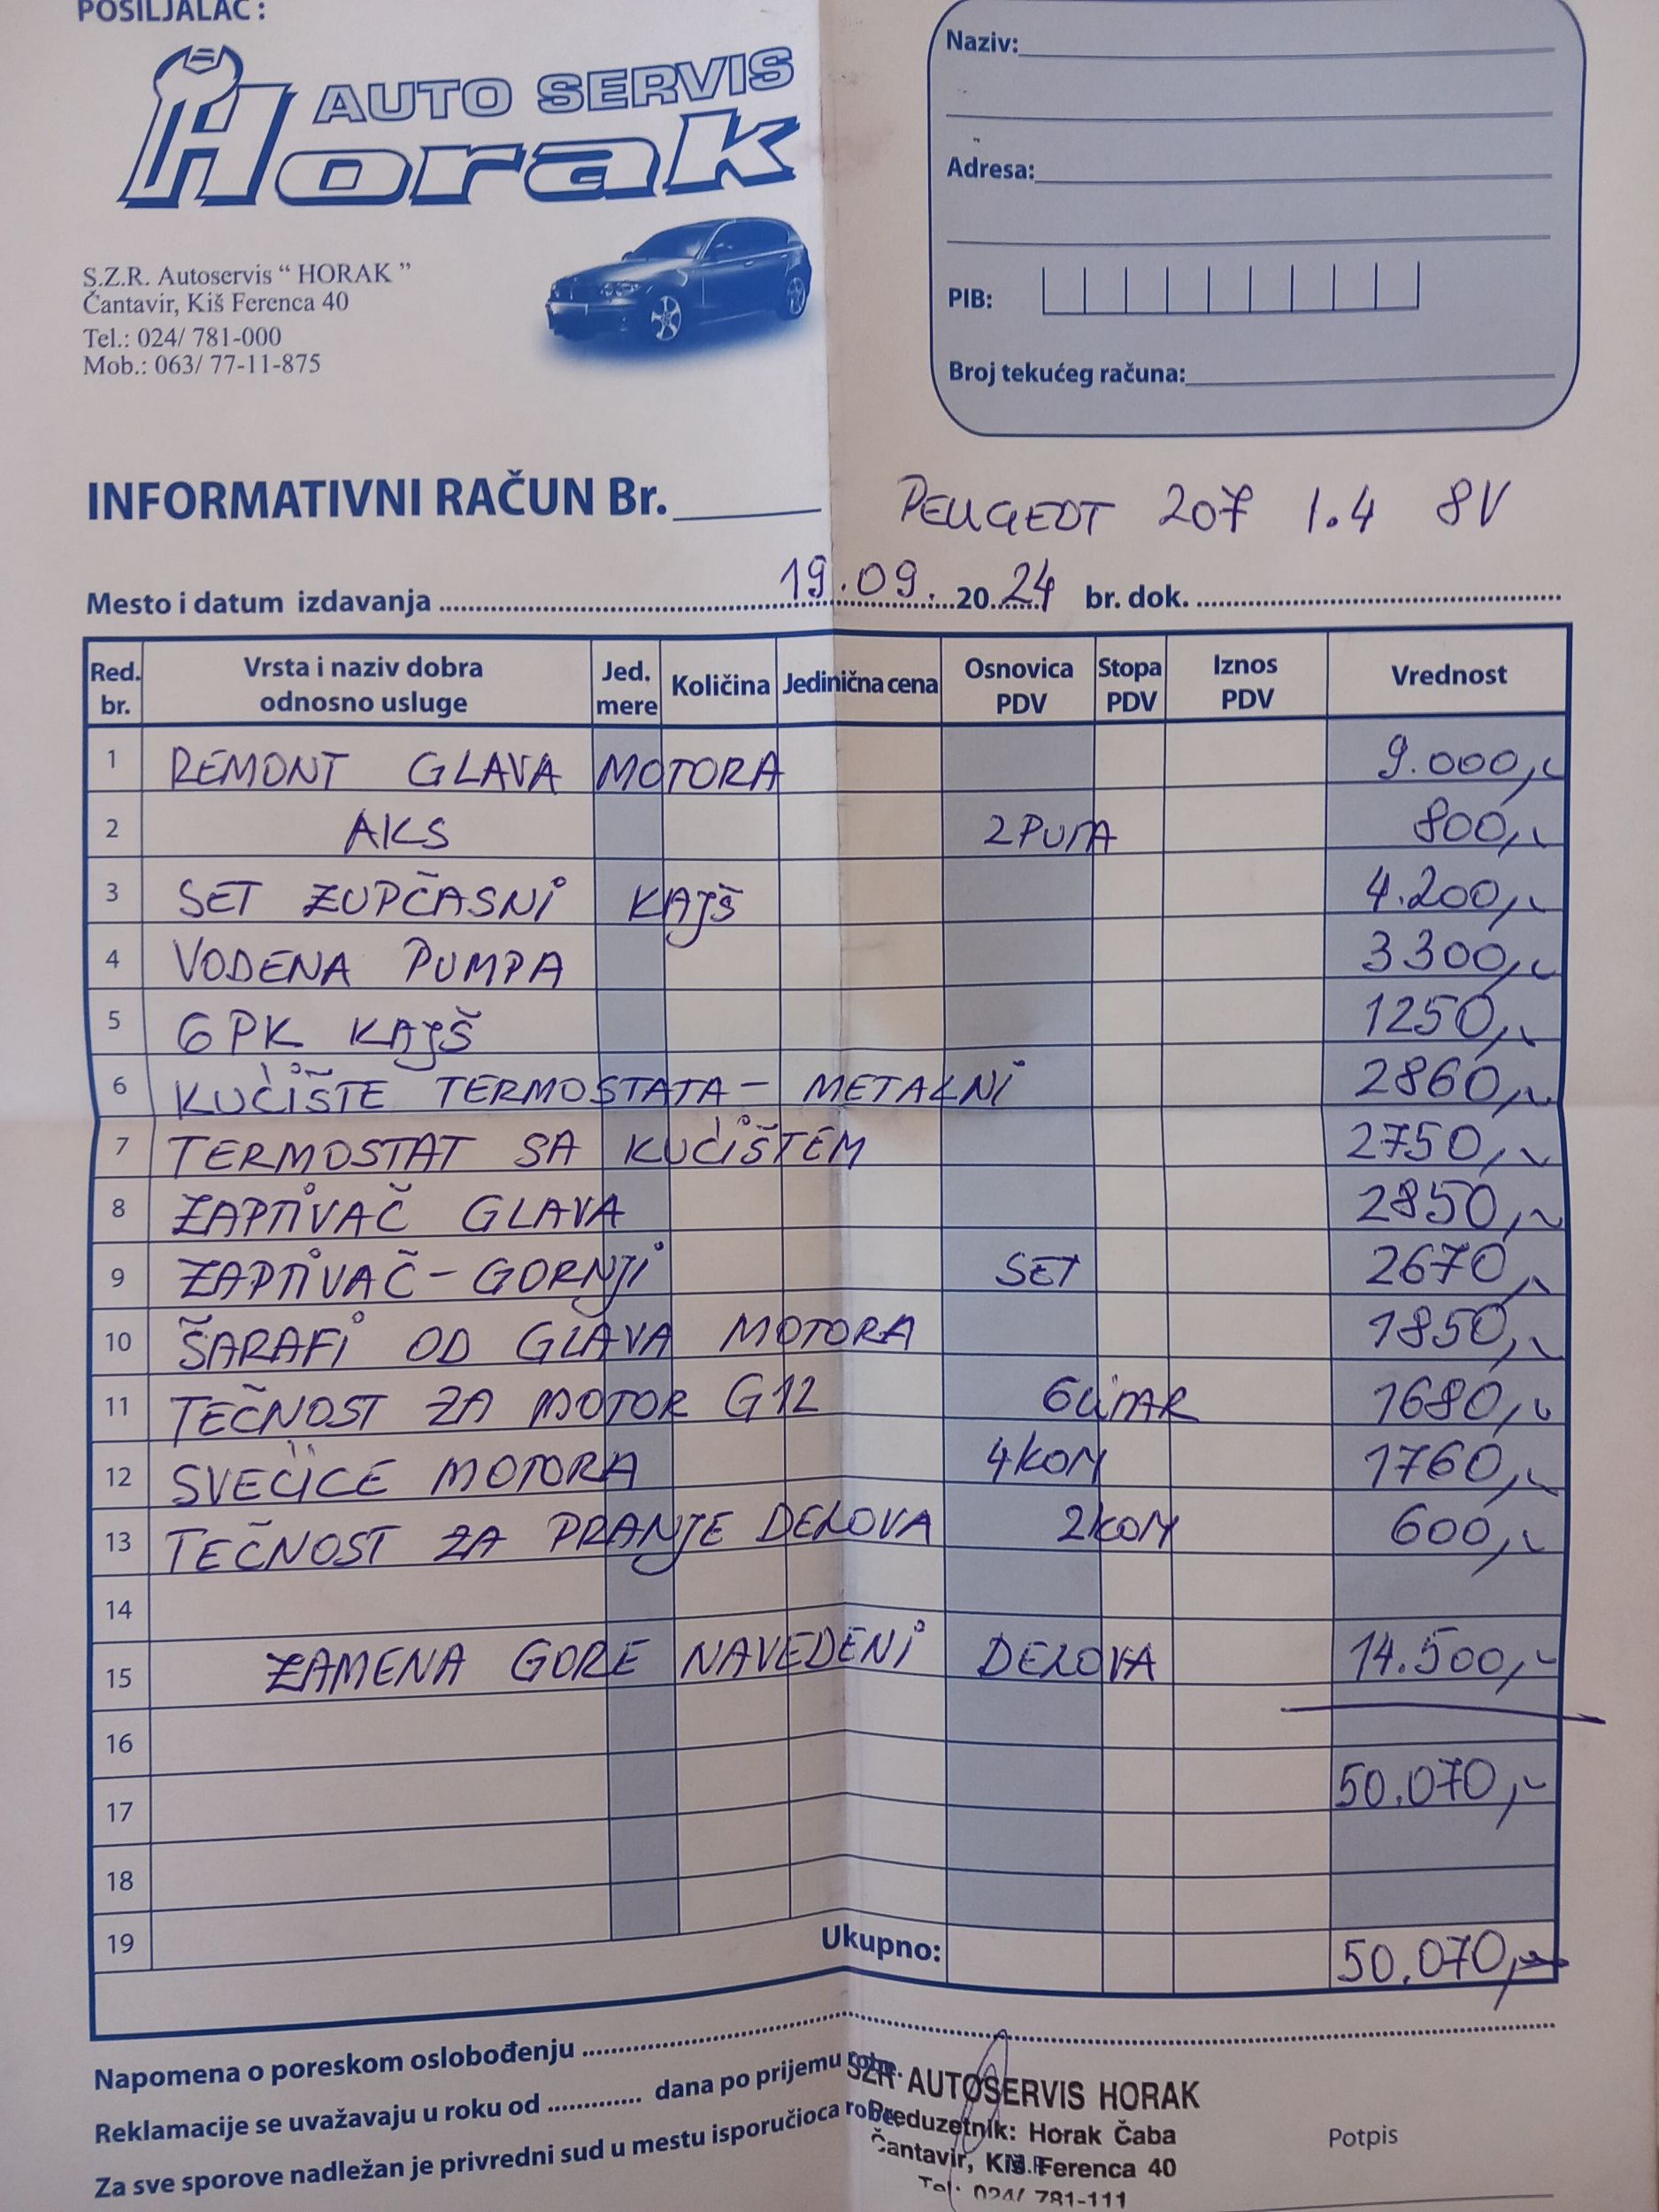 POŠILJALAC:
AUTO SERVIS
Horak
S.Z.R. Autoservis “ HORAK ”
Čantavir, Kiš Ferenca 40
Tel.: 024/ 781-000
Mob.: 063/ 77-11-875
Naziv:
Adresa:
PIB:
Broj tekućeg računa:
INFORMATIVNI RAČUN Br.
PEUGEOT 207 1.4 8V
Mesto i datum izdavanja 19.09. 20 24 br. dok.
Red. br. Vrsta i naziv dobra odnosno usluge Jed. mere Količina Jedinična cena Osnovica PDV Stopa PDV Iznos PDV Vrednost
1 REMONT GLAVA MOTORA 9.000,-
2 AKS 2 PUTA 800,-
3 SET ZUPČASNI KAJŠ 4.200,-
4 VODENA PUMPA 3300,-
5 6PK KAJŠ 1250,-
6 KUĆIŠTE TERMOSTATA - METALNI 2860,-
7 TERMOSTAT SA KUĆIŠTEM 2750,-
8 ZAPTIVAČ GLAVA 2850,-
9 ZAPTIVAČ - GORNJI SET 2670,-
10 ŠARAFI OD GLAVA MOTORA 1850,-
11 TEČNOST ZA MOTOR G12 6 LITAR 1680,-
12 SVEĆICE MOTORA 4 KOM 1760,-
13 TEČNOST ZA PRANJE DELOVA 2 KOM 600,-
14
15 ZAMENA GORE NAVEDENI DELOVA 14.500,-
16
17 50.070,-
18
19 Ukupno: 50.070,-
Napomena o poreskom oslobođenju
Reklamacije se uvažavaju u roku od dana po prijemu robe.
Za sve sporove nadležan je privredni sud u mestu isporučioca robe.
SZR AUTOSERVIS HORAK
Preduzetnik: Horak Čaba
Čantavir, Kiš Ferenca 40
Tel: 024/ 781-111
M.P.
Potpis